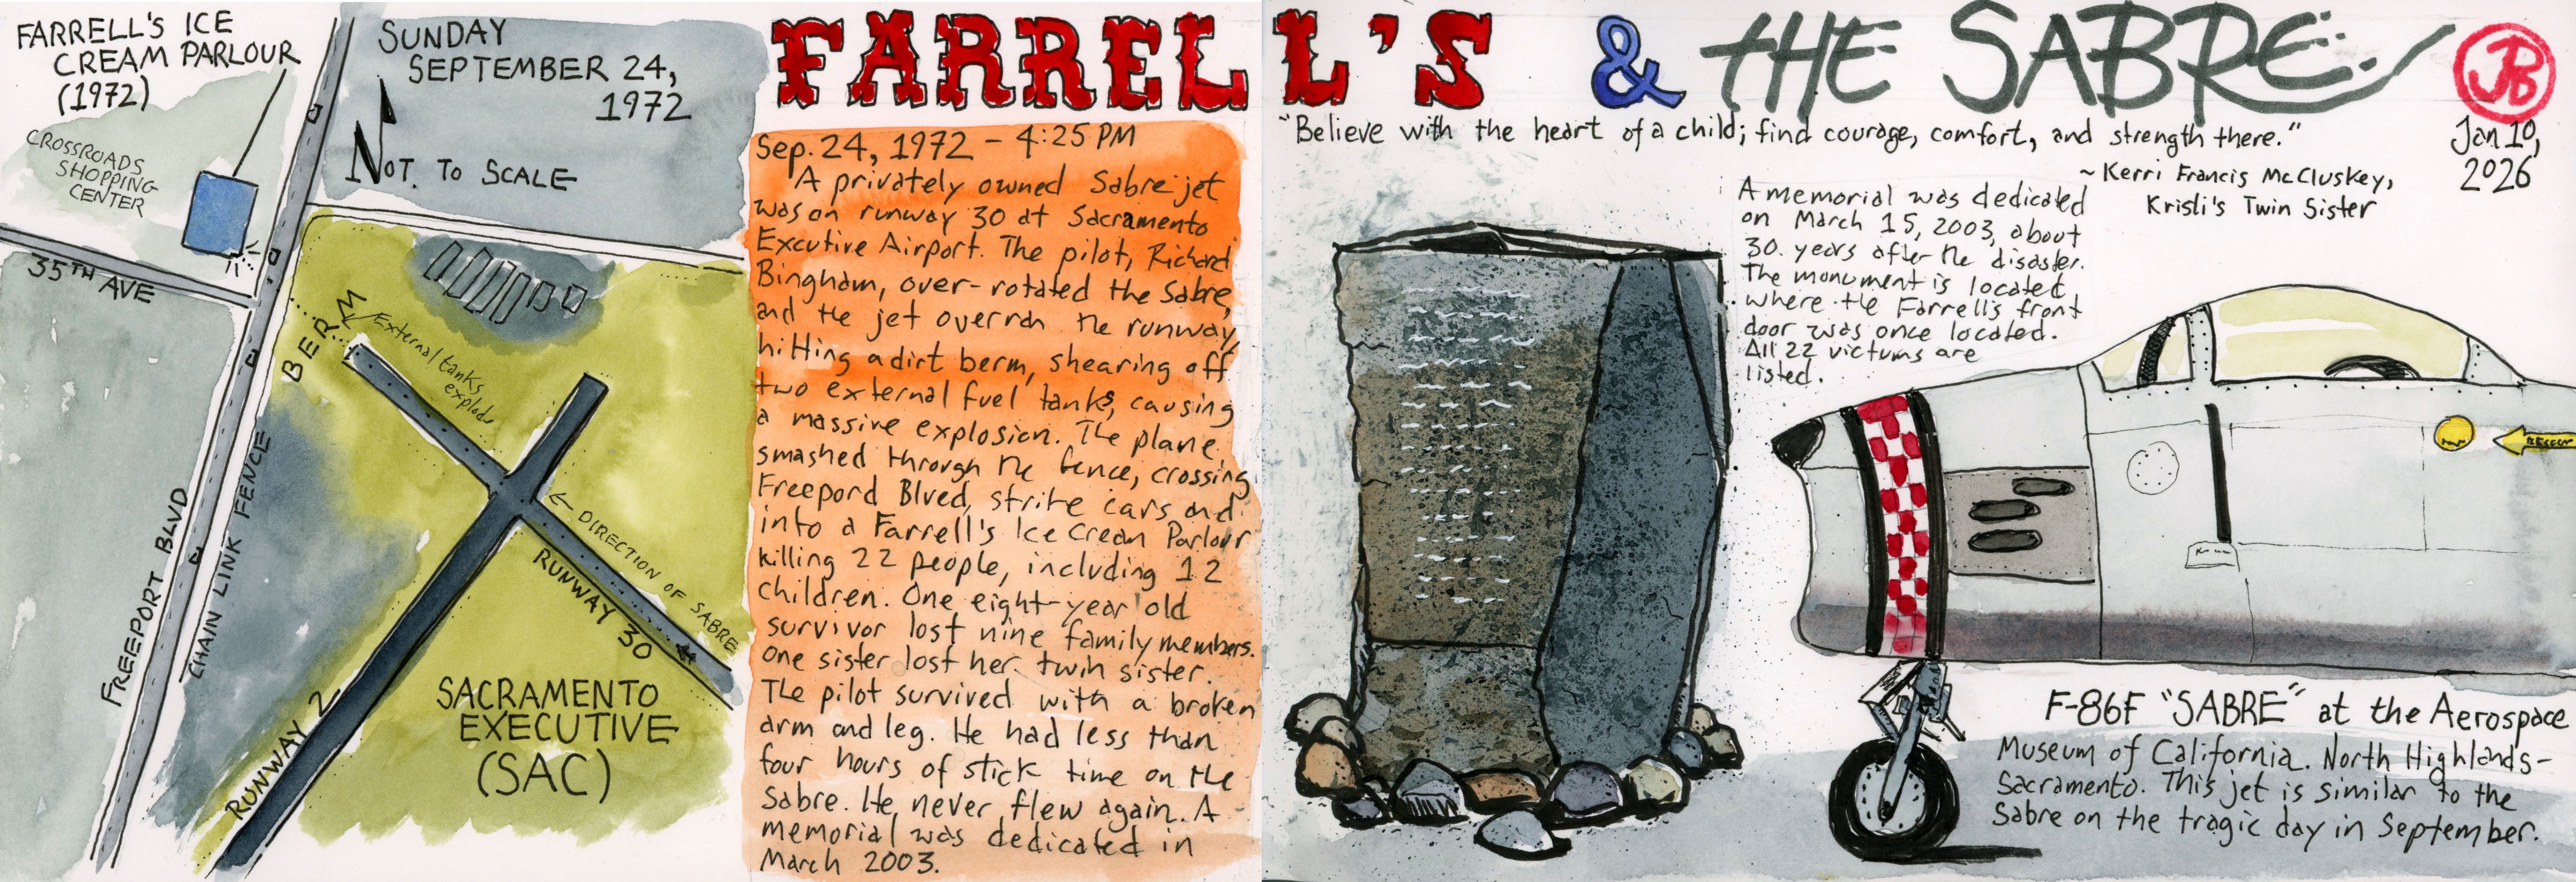 FARRELL'S ICE
CREAM PARLOUR
(1972)
CROSSROADS
SHOPPING
CENTER
35TH AVE
SUNDAY
SEPTEMBER 24,
1972
NOT. TO SCALE
BERM
External tanks
explode
FREEPORT BLVD
CHAIN LINK FENCE
DIRECTION OF SABRE
RUNWAY 30
RUNWAY 2
SACRAMENTO
EXECUTIVE
(SAC)
FARRELL'S & THE SABRE
JPB
Jan 10,
2026
Sep. 24, 1972 - 4:25 PM
A privately owned Sabre jet
was on runway 30 at Sacramento
Excutive Airport. The pilot, Richard
Bingham, over-rotated the Sabre,
and the jet overran the runway,
hitting a dirt berm, shearing off
two external fuel tanks, causing
a massive explosion. The plane
smashed through the fence, crossing
Freepord Blved, strike cars and
into a Farrell's Ice Cream Parlour
killing 22 people, including 12
children. One eight-year old
survivor lost nine family members.
One sister lost her twin sister.
The pilot survived with a broken
arm and leg. He had less than
four hours of stick time on the
Sabre. He never flew again. A
memorial was dedicated in
March 2003.
"Believe with the heart of a child; find courage, comfort, and strength there."
~Kerri Francis McCluskey,
Kristi's Twin Sister
A memorial was dedicated
on March 15, 2003, about
30. years after the disaster.
The monument is located
where the Farrell's front
door was once located.
All 22 victums are
listed.
RESCUE
F-86F "SABRE" at the Aerospace
Museum of California. North Highlands-
Sacramento. This jet is similar to the
Sabre on the tragic day in September.